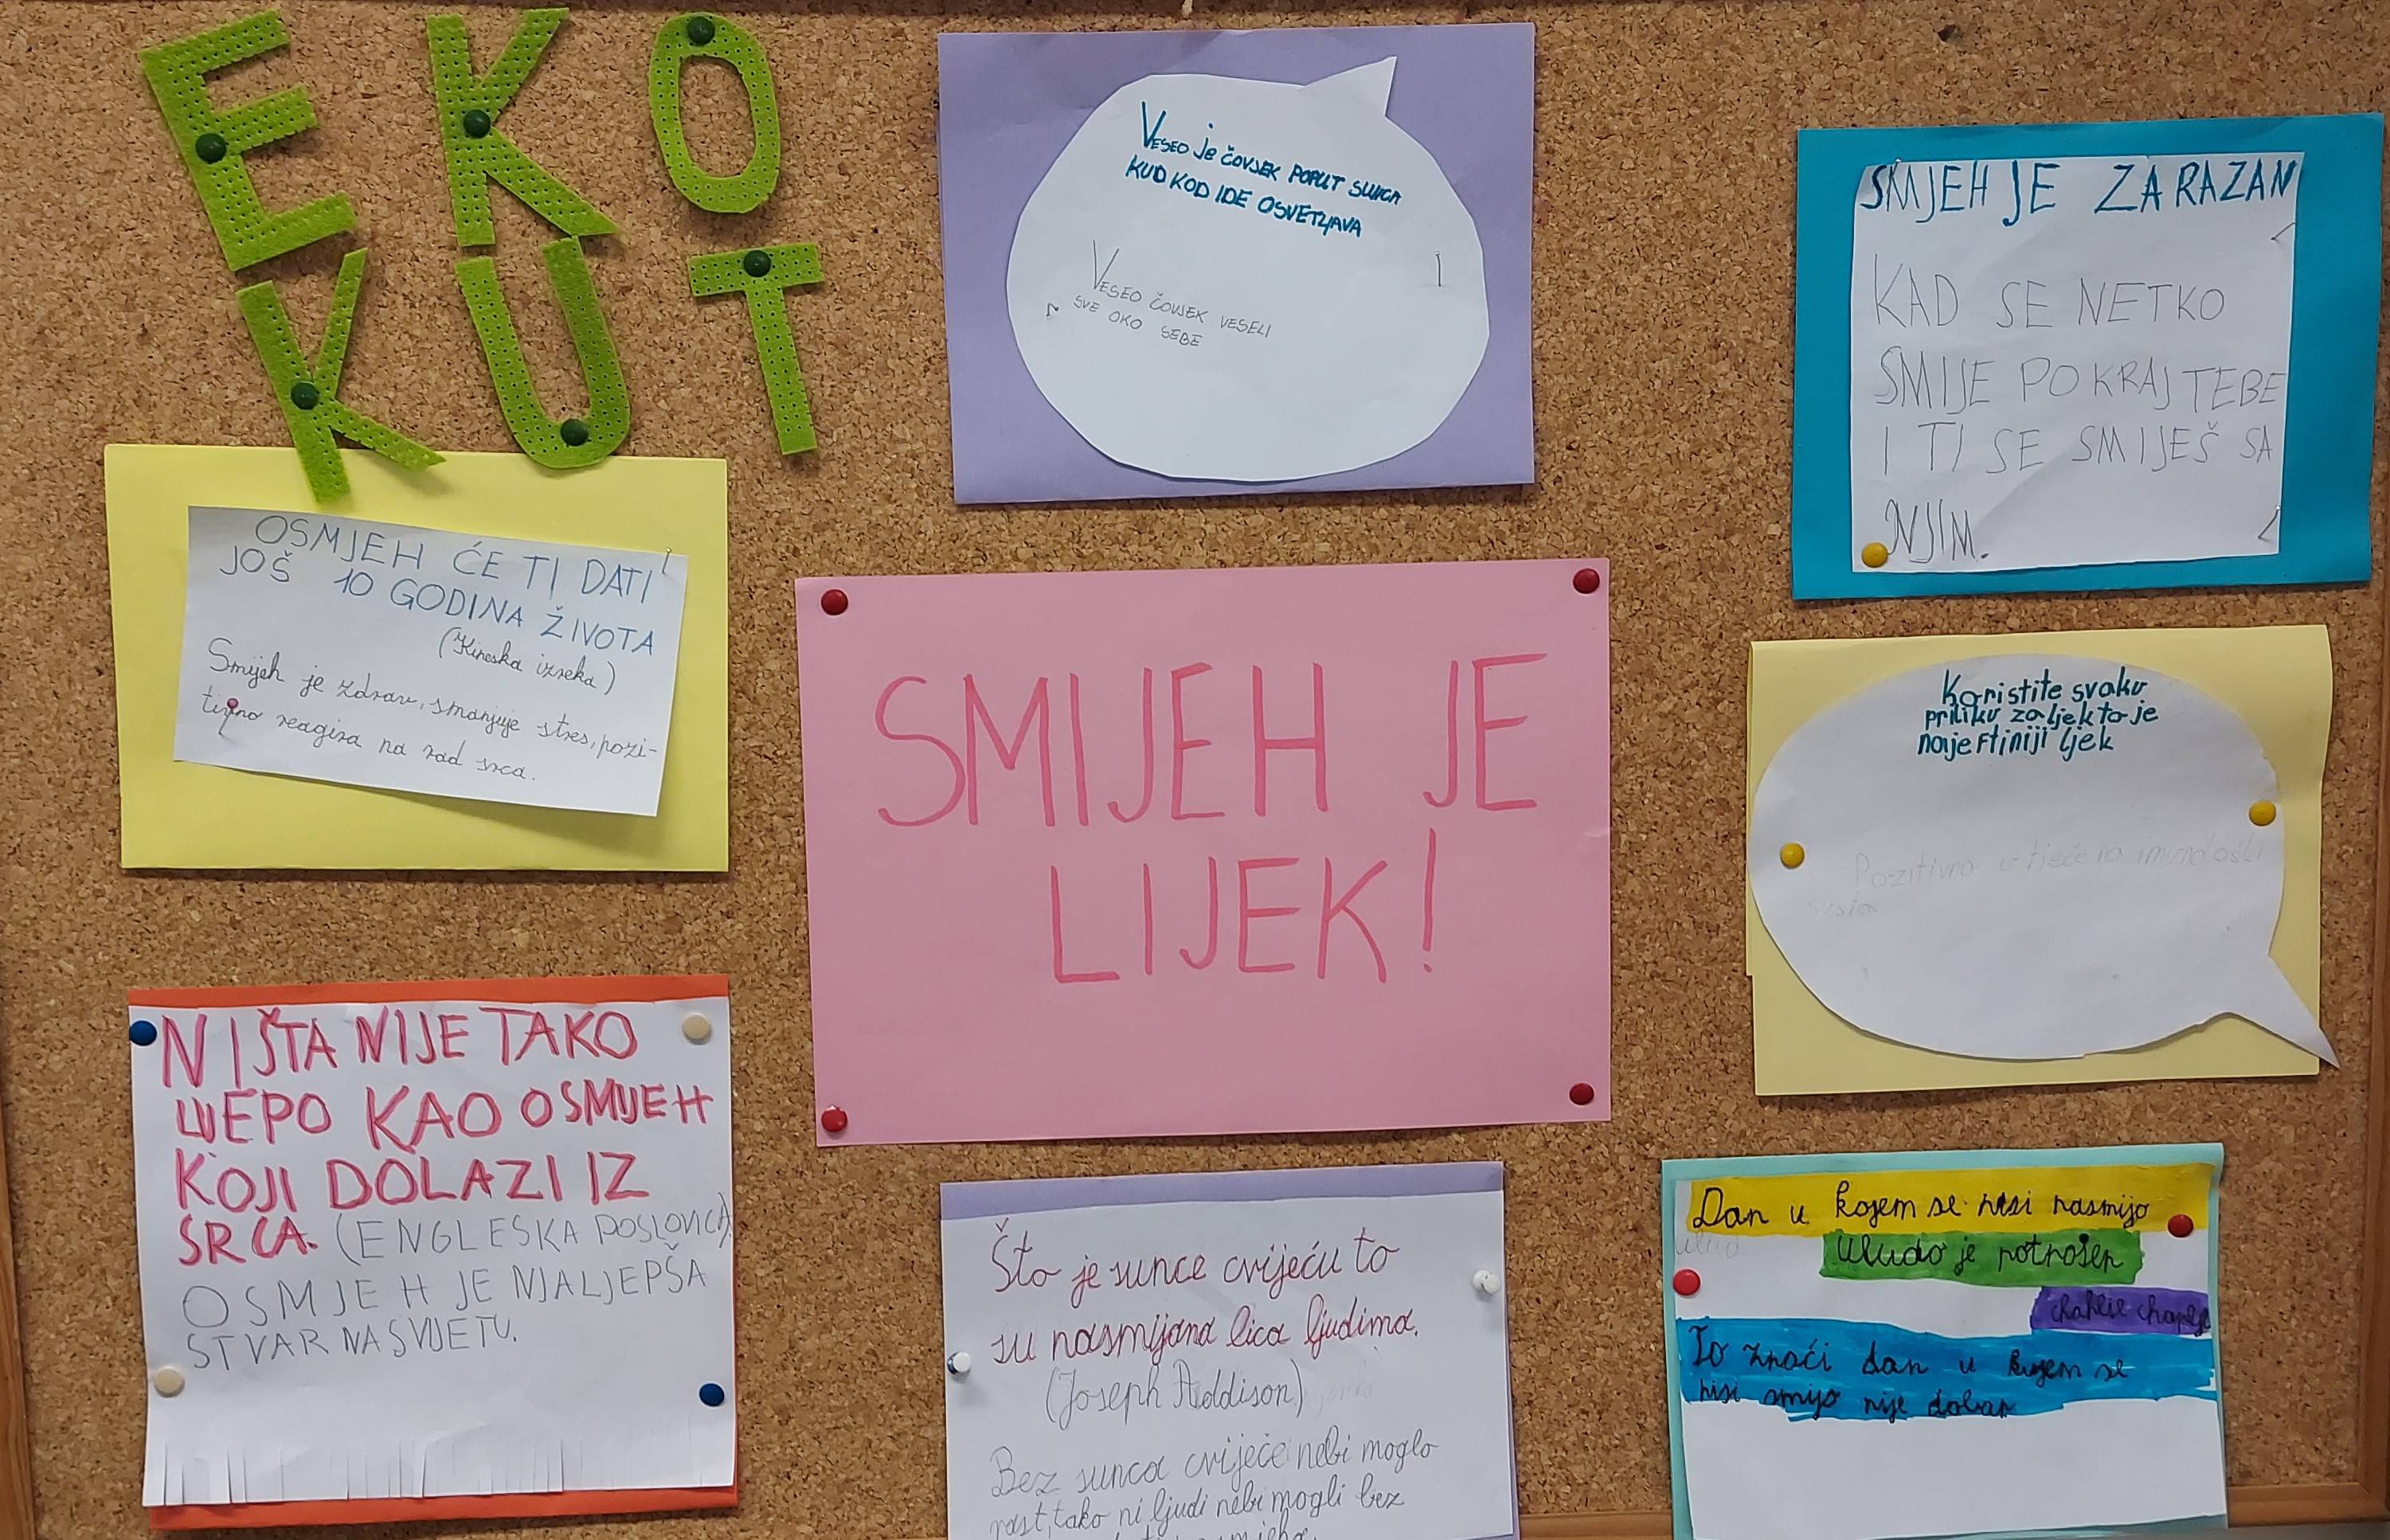 EKO
KUT
VESEO JE ČOVJEK POPUT SUNCA
KUD KOD IDE OSVETLJAVA
VESEO ČOVJEK VESELI
SVE OKO SEBE
SMJEH JE ZARAZAN
KAD SE NETKO
SMIJE POKRAJ TEBE
I TI SE SMIJEŠ SA
NJIM.
OSMJEH ĆE TI DATI
JOŠ 10 GODINA ŽIVOTA
(Kineska izreka)
Smijeh je zdrav, smanjuje stres, pozi-
tivno reagira na rad srca.
SMIJEH JE
LIJEK!
Koristite svaku
priliku za ljek to je
najeftiniji ljek
Pozitivno utječe na
NIŠTA NIJE TAKO
LIJEPO KAO OSMIJEH
KOJI DOLAZI IZ
SRCA. (ENGLESKA POSLOVICA)
OSMJEH JE NJALJEPŠA
STVAR NA SVIJETU.
Što je sunce cvijeću to
su nasmijana lica ljudima.
(Joseph Addison)
Bez sunca cvijeće nebi moglo
rast, tako ni ljudi nebi mogli bez
Dan u kojem se nisi nasmijo
uludo je potrošen
To znači dan u kojem se
nisi smijo nije dobar